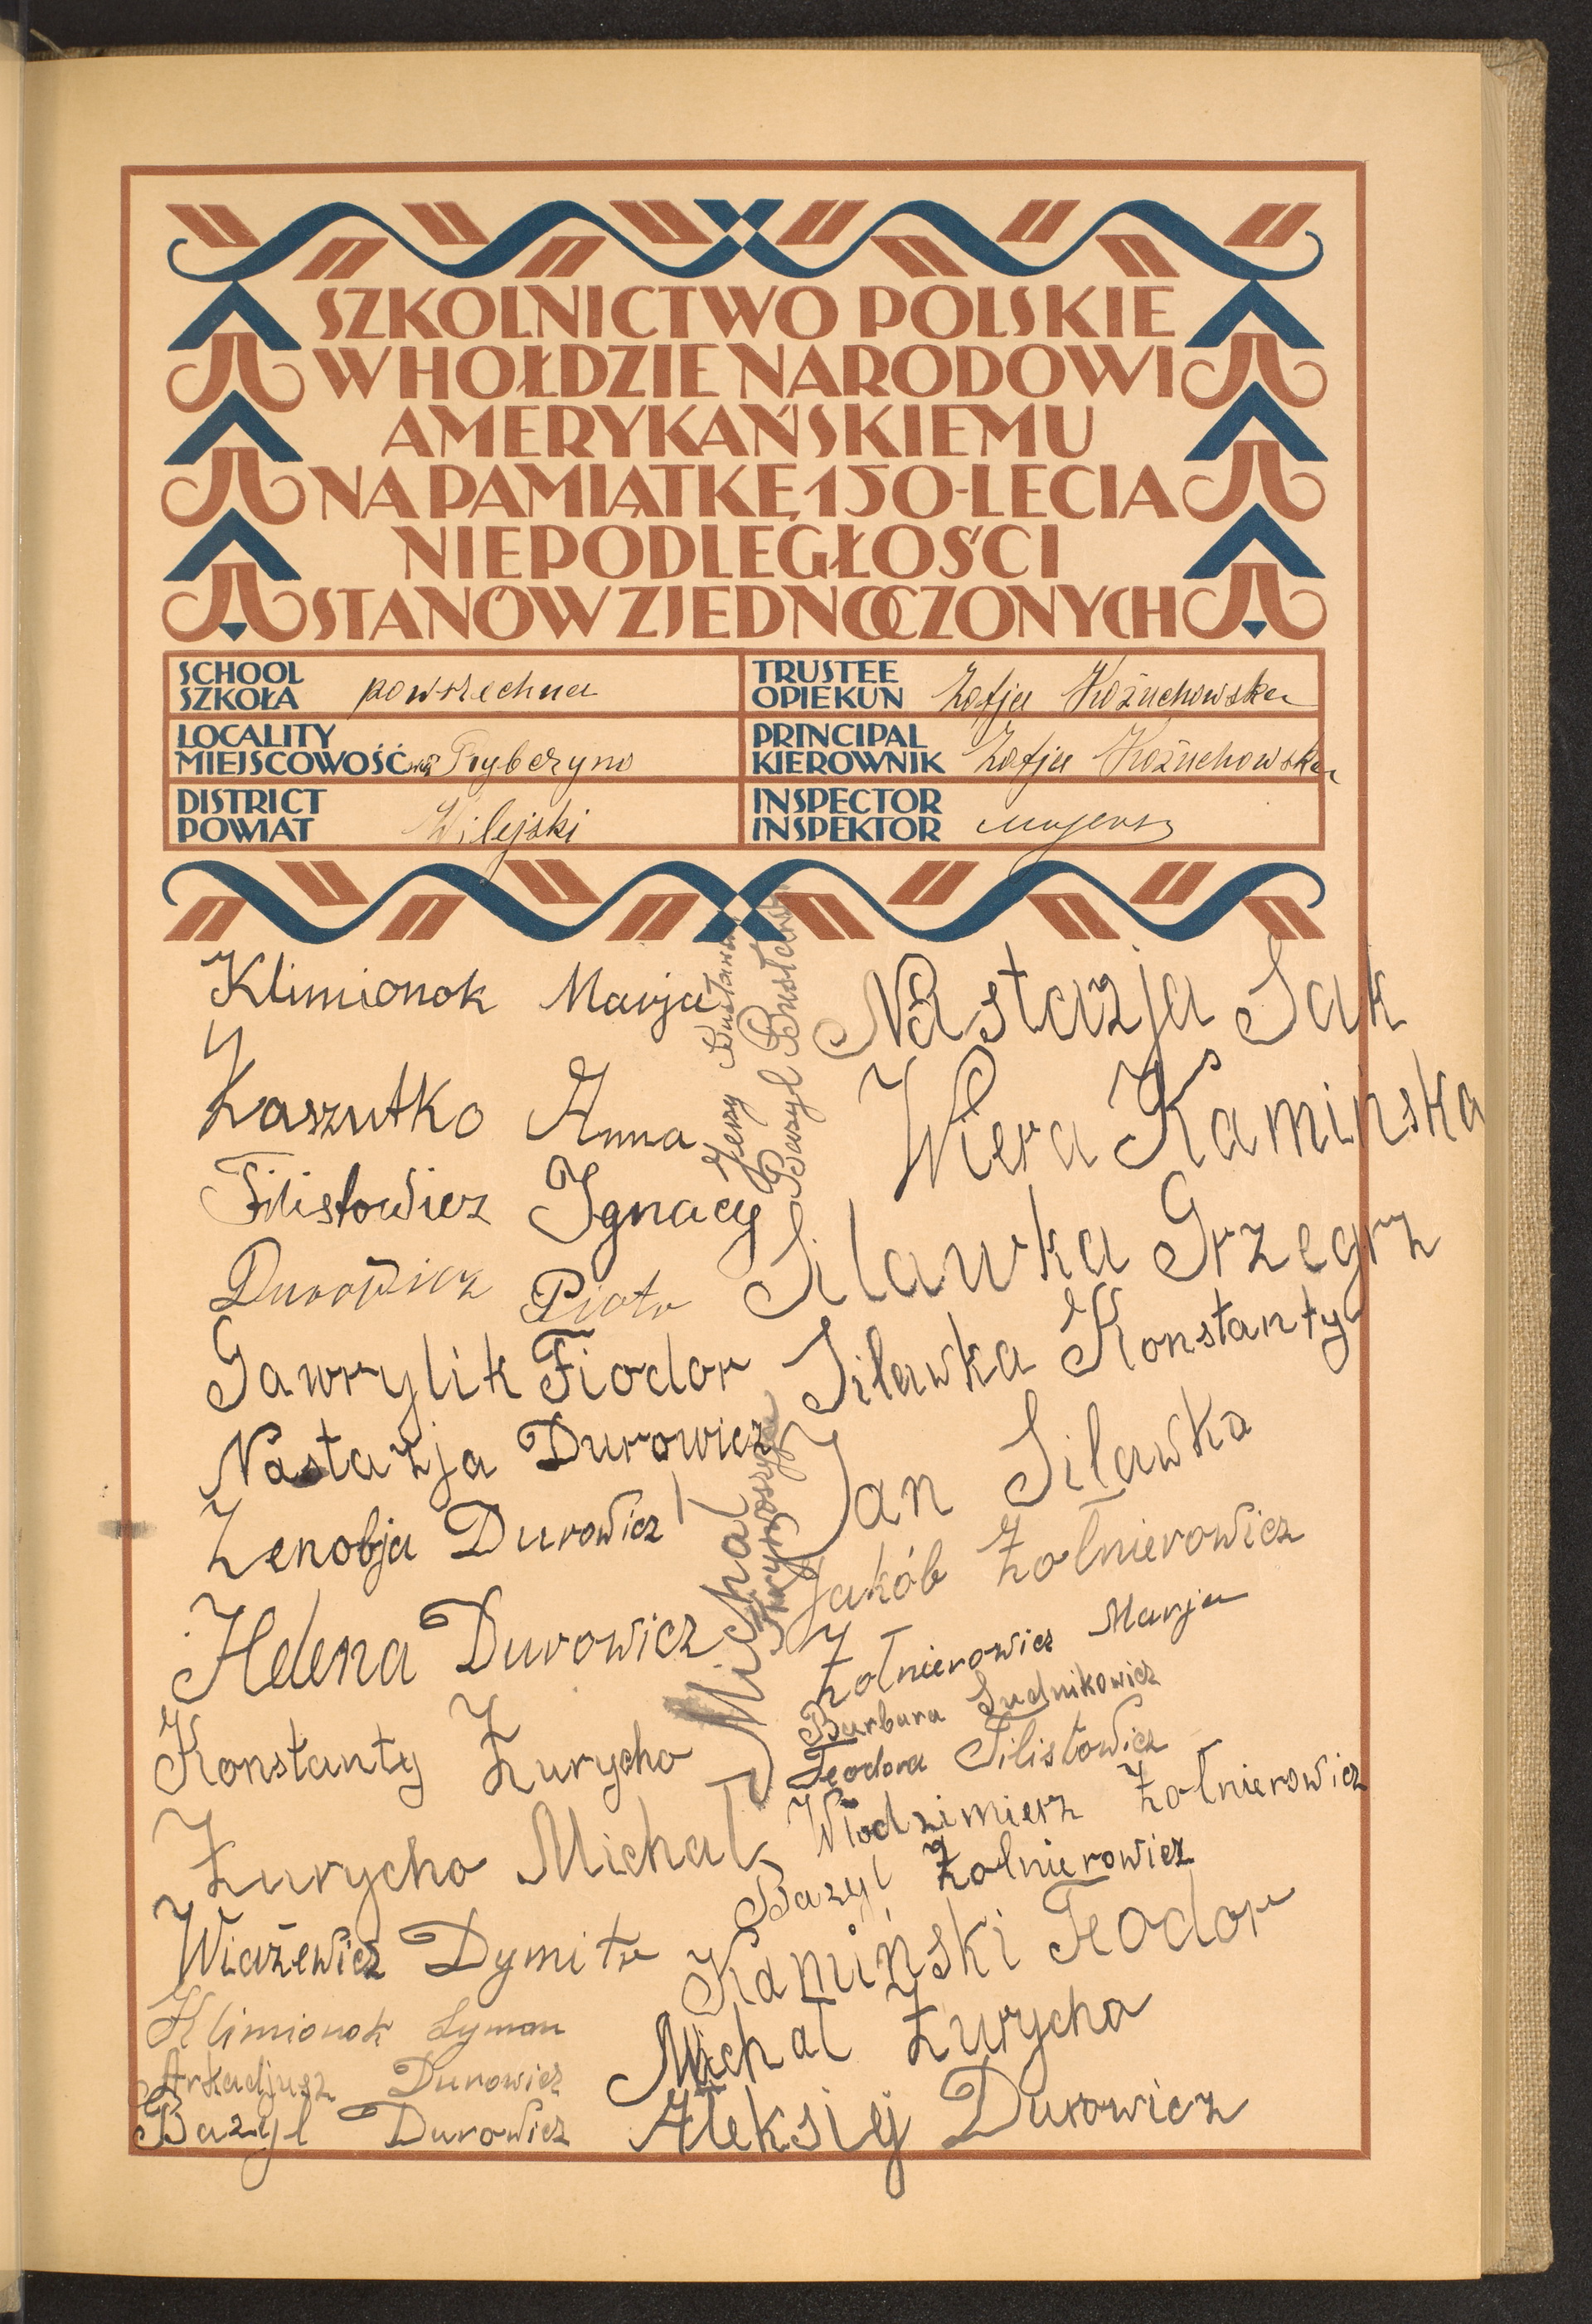 SZKOLNICTWO POLSKIE
W HOŁDZIE NARODOWI
AMERYKAŃSKIEMU
NA PAMIĄTKĘ 150-LECIA
NIEPODLEGŁOŚCI
STANÓW ZJEDNOCZONYCH
SCHOOL
SZKOŁA powszechna
TRUSTEE
OPIEKUN Zofja Kożuchowska
LOCALITY
MIEJSCOWOŚĆ
PRINCIPAL
KIEROWNIK Zofja Kożuchowska
DISTRICT
POWIAT Wilejski
INSPECTOR
INSPEKTOR
Klimionok Marja
Łaszutko Anna
Filistowicz Ignacy
Durowicz Piotr
Gawrylik Fiodor
Nastazja Durowicz
Zenobja Durowicz
Helena Durowicz
Konstanty Żurycho
Żurycho Michał
Wiażewicz Dymitr
Klimionok Symon
Arkadjusz Durowicz
Bazyl Durowicz
Jerzy
Bazyl
Michał
Nastazja Sak
Wiera Kaminska
Siławka Grzegrz
Siławka Konstanty
Jan Siławka
Jakób Żołnierowicz
Żołnierowicz Marja
Barbara Sudnikowicz
Teodora Filistowicz
Włodzimierz Żołnierowicz
Bazyl Żołnierowicz
Kamiński Teodor
Michał Żurycho
Aleksiej Durowicz